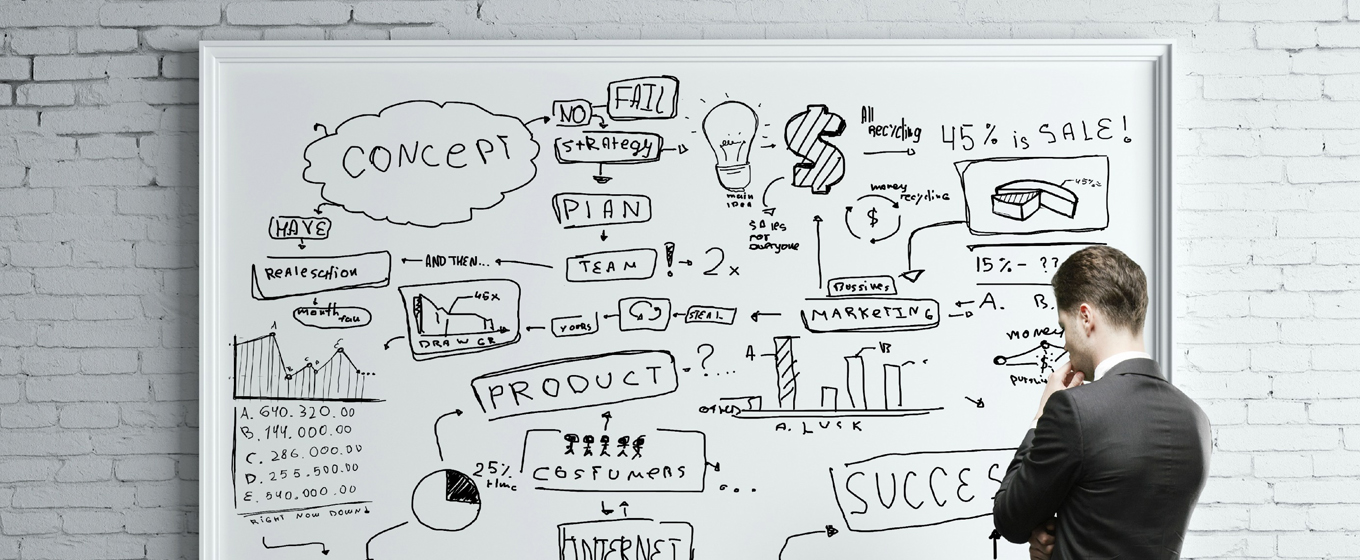 FAIL
NO
CONCEPT
STRATEGY
main
idea
$
All
Recycling
45% is SALE!
45%
PLAN
money
recycling
$
SALES
not
everyone
HAVE
Realeschion
AND THEN...
TEAM
! 2x
15% - ??
Bussines
MARKETING
A. B.
month
45x
DRAW GR
YOURS
STEAL
money
A
B
C
PRODUCT
? ...
A
B
A. LUSK
A. 640.320.00
B. 144.000.00
C. 286.000.00
D. 255.500.00
E. 540.000.00
RIGHT NOW DOWN
25%
time
COSTUMERS
SUCCES
INTERNET